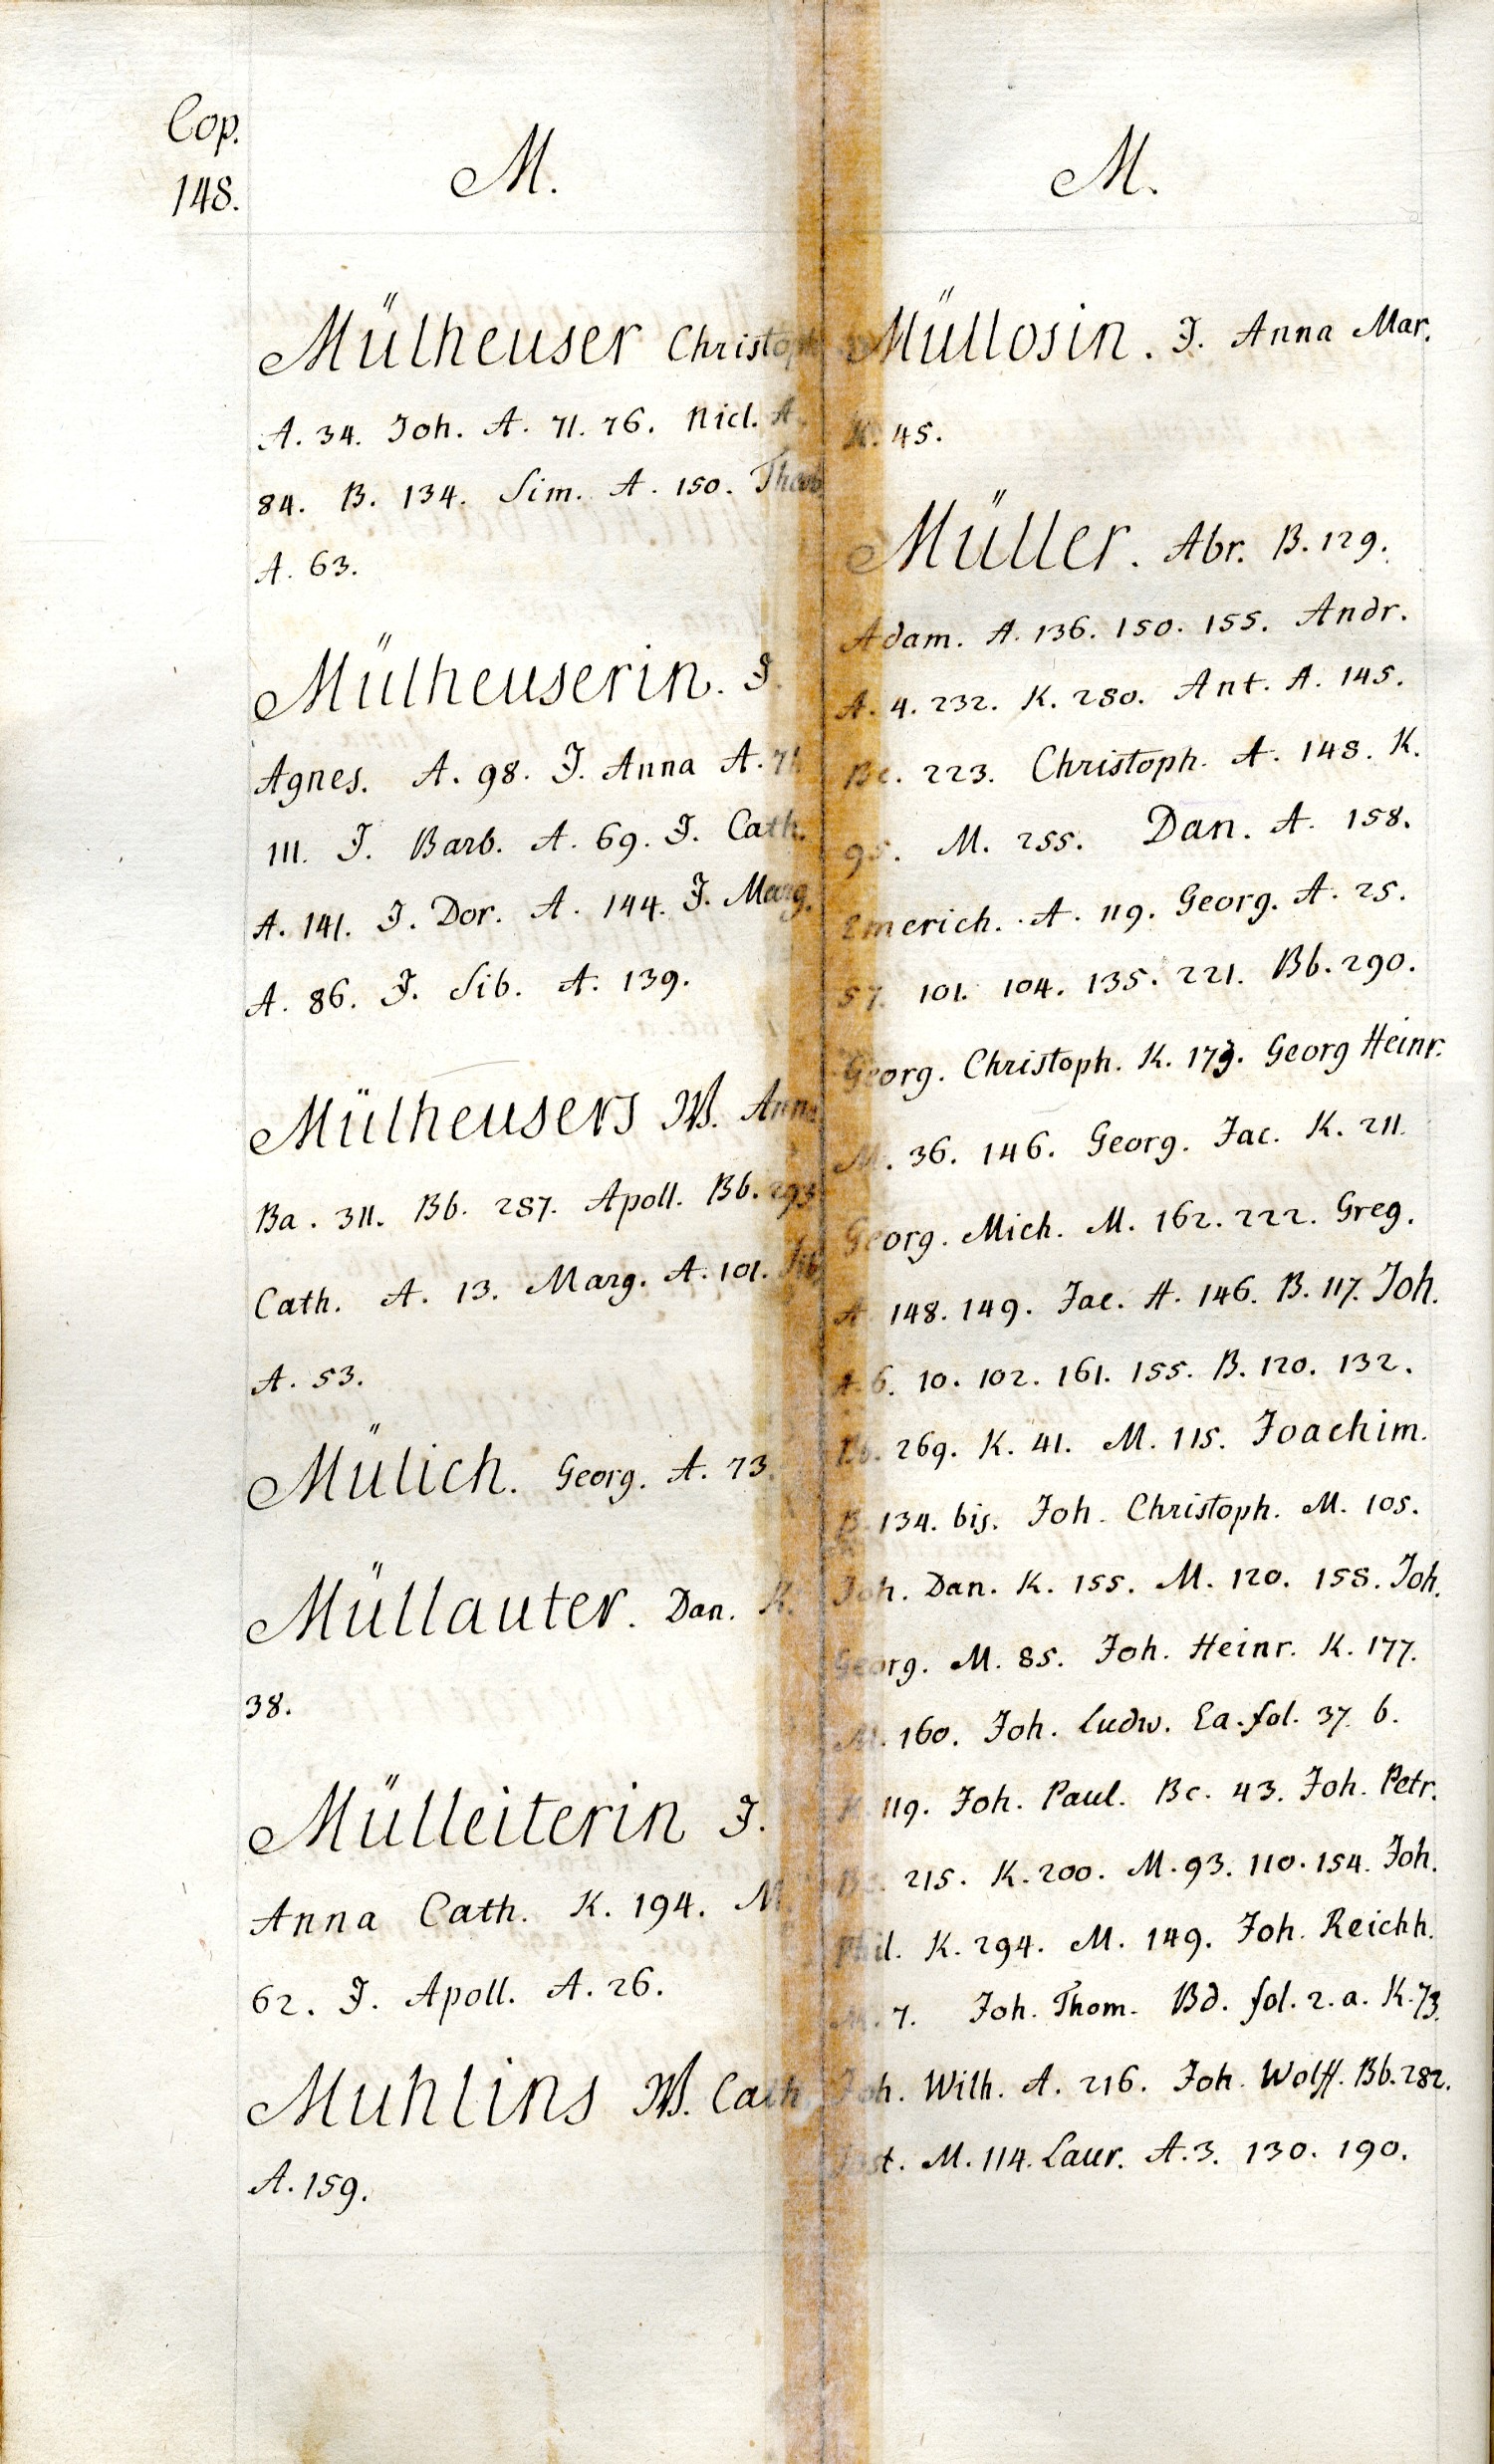 Cop.
148.
M.
Mülheuser Christoph
A. 34. Joh. A. 71. 76. Nicl. A.
84. B. 134. Sim. A. 150. Theob
A. 63.
Mülheuserin. J.
Agnes. A. 98. J. Anna A. 71
111. J. Barb. A. 69. J. Cath.
A. 141. J. Dor. A. 144. J. Marg.
A. 86. J. Sib. A. 139.
Mülheusers W. Anna
Ba. 311. Bb. 287. Apoll. Bb. 293
Cath. A. 13. Marg. A. 101. Sib
A. 53.
Mülich. Georg. A. 73.
Müllauter. Dan. K.
38.
Mülleiterin J.
Anna Cath. K. 194. M.
62. J. Apoll. A. 26.
Muhlins W. Cath.
A. 159.
M.
Müllosin. J. Anna Mar.
K. 45.
Müller. Abr. B. 129.
Adam. A. 136. 150. 155. Andr.
A. 4. 232. K. 280. Ant. A. 145.
Bc. 223. Christoph. A. 148. K.
95. M. 255. Dan. A. 158.
Emerich. A. 119. Georg. A. 25.
57. 101. 104. 135. 221. Bb. 290.
Georg. Christoph. K. 179. Georg Heinr.
M. 36. 146. Georg. Jac. K. 211.
Georg. Mich. M. 162. 222. Greg.
A. 148. 149. Jac. A. 146. B. 117. Joh.
A. 6. 10. 102. 161. 155. B. 120. 132.
Bb. 269. K. 41. M. 115. Joachim.
B. 134. bis. Joh. Christoph. M. 105.
Joh. Dan. K. 155. M. 120. 158. Joh.
Georg. M. 85. Joh. Heinr. K. 177.
M. 160. Joh. Ludw. Ea. fol. 37. b.
K. 119. Joh. Paul. Bc. 43. Joh. Petr.
Bc. 215. K. 200. M. 93. 110. 154. Joh.
Phil. K. 294. M. 149. Joh. Reichh.
M. 7. Joh. Thom. Bd. fol. 2. a. K. 73.
Joh. Wilh. A. 216. Joh. Wolff. Bb. 282.
Just. M. 114. Laur. A. 3. 130. 190.